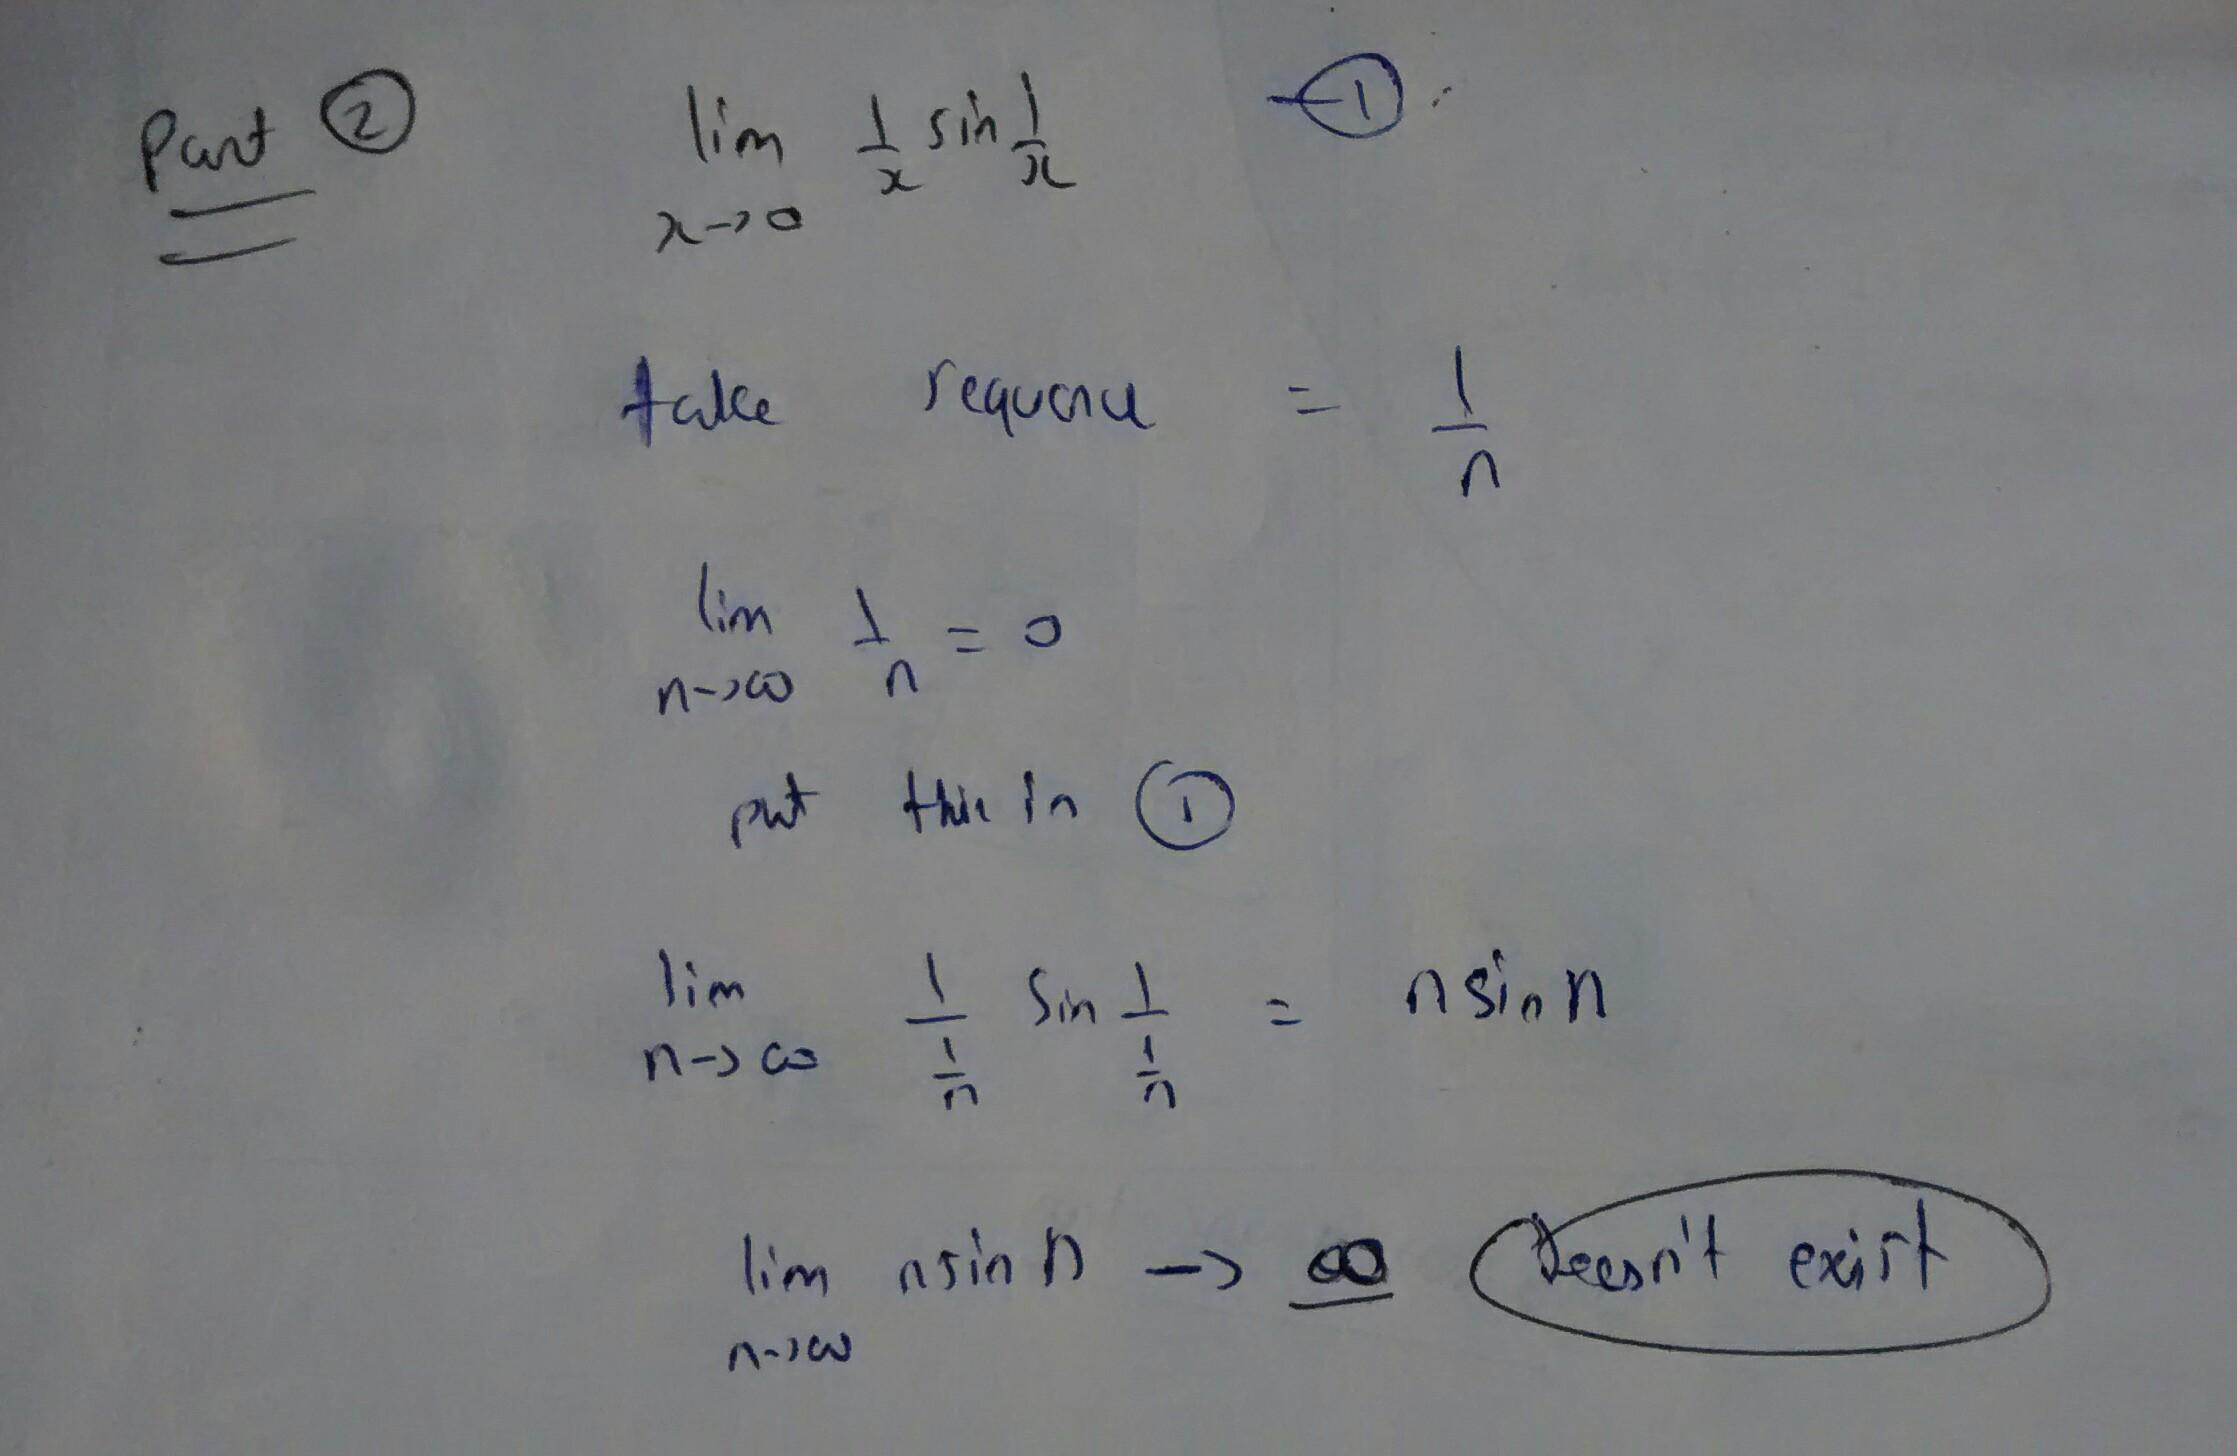 Part ② lim 1/x sin 1/x —①
x→0
take sequence = 1/n
lim 1/n = 0
n→∞
put this in ①
lim 1/(1/n) sin 1/(1/n) = n sin n
n→∞
lim n sin n → ∞ Doesn't exist
n→∞